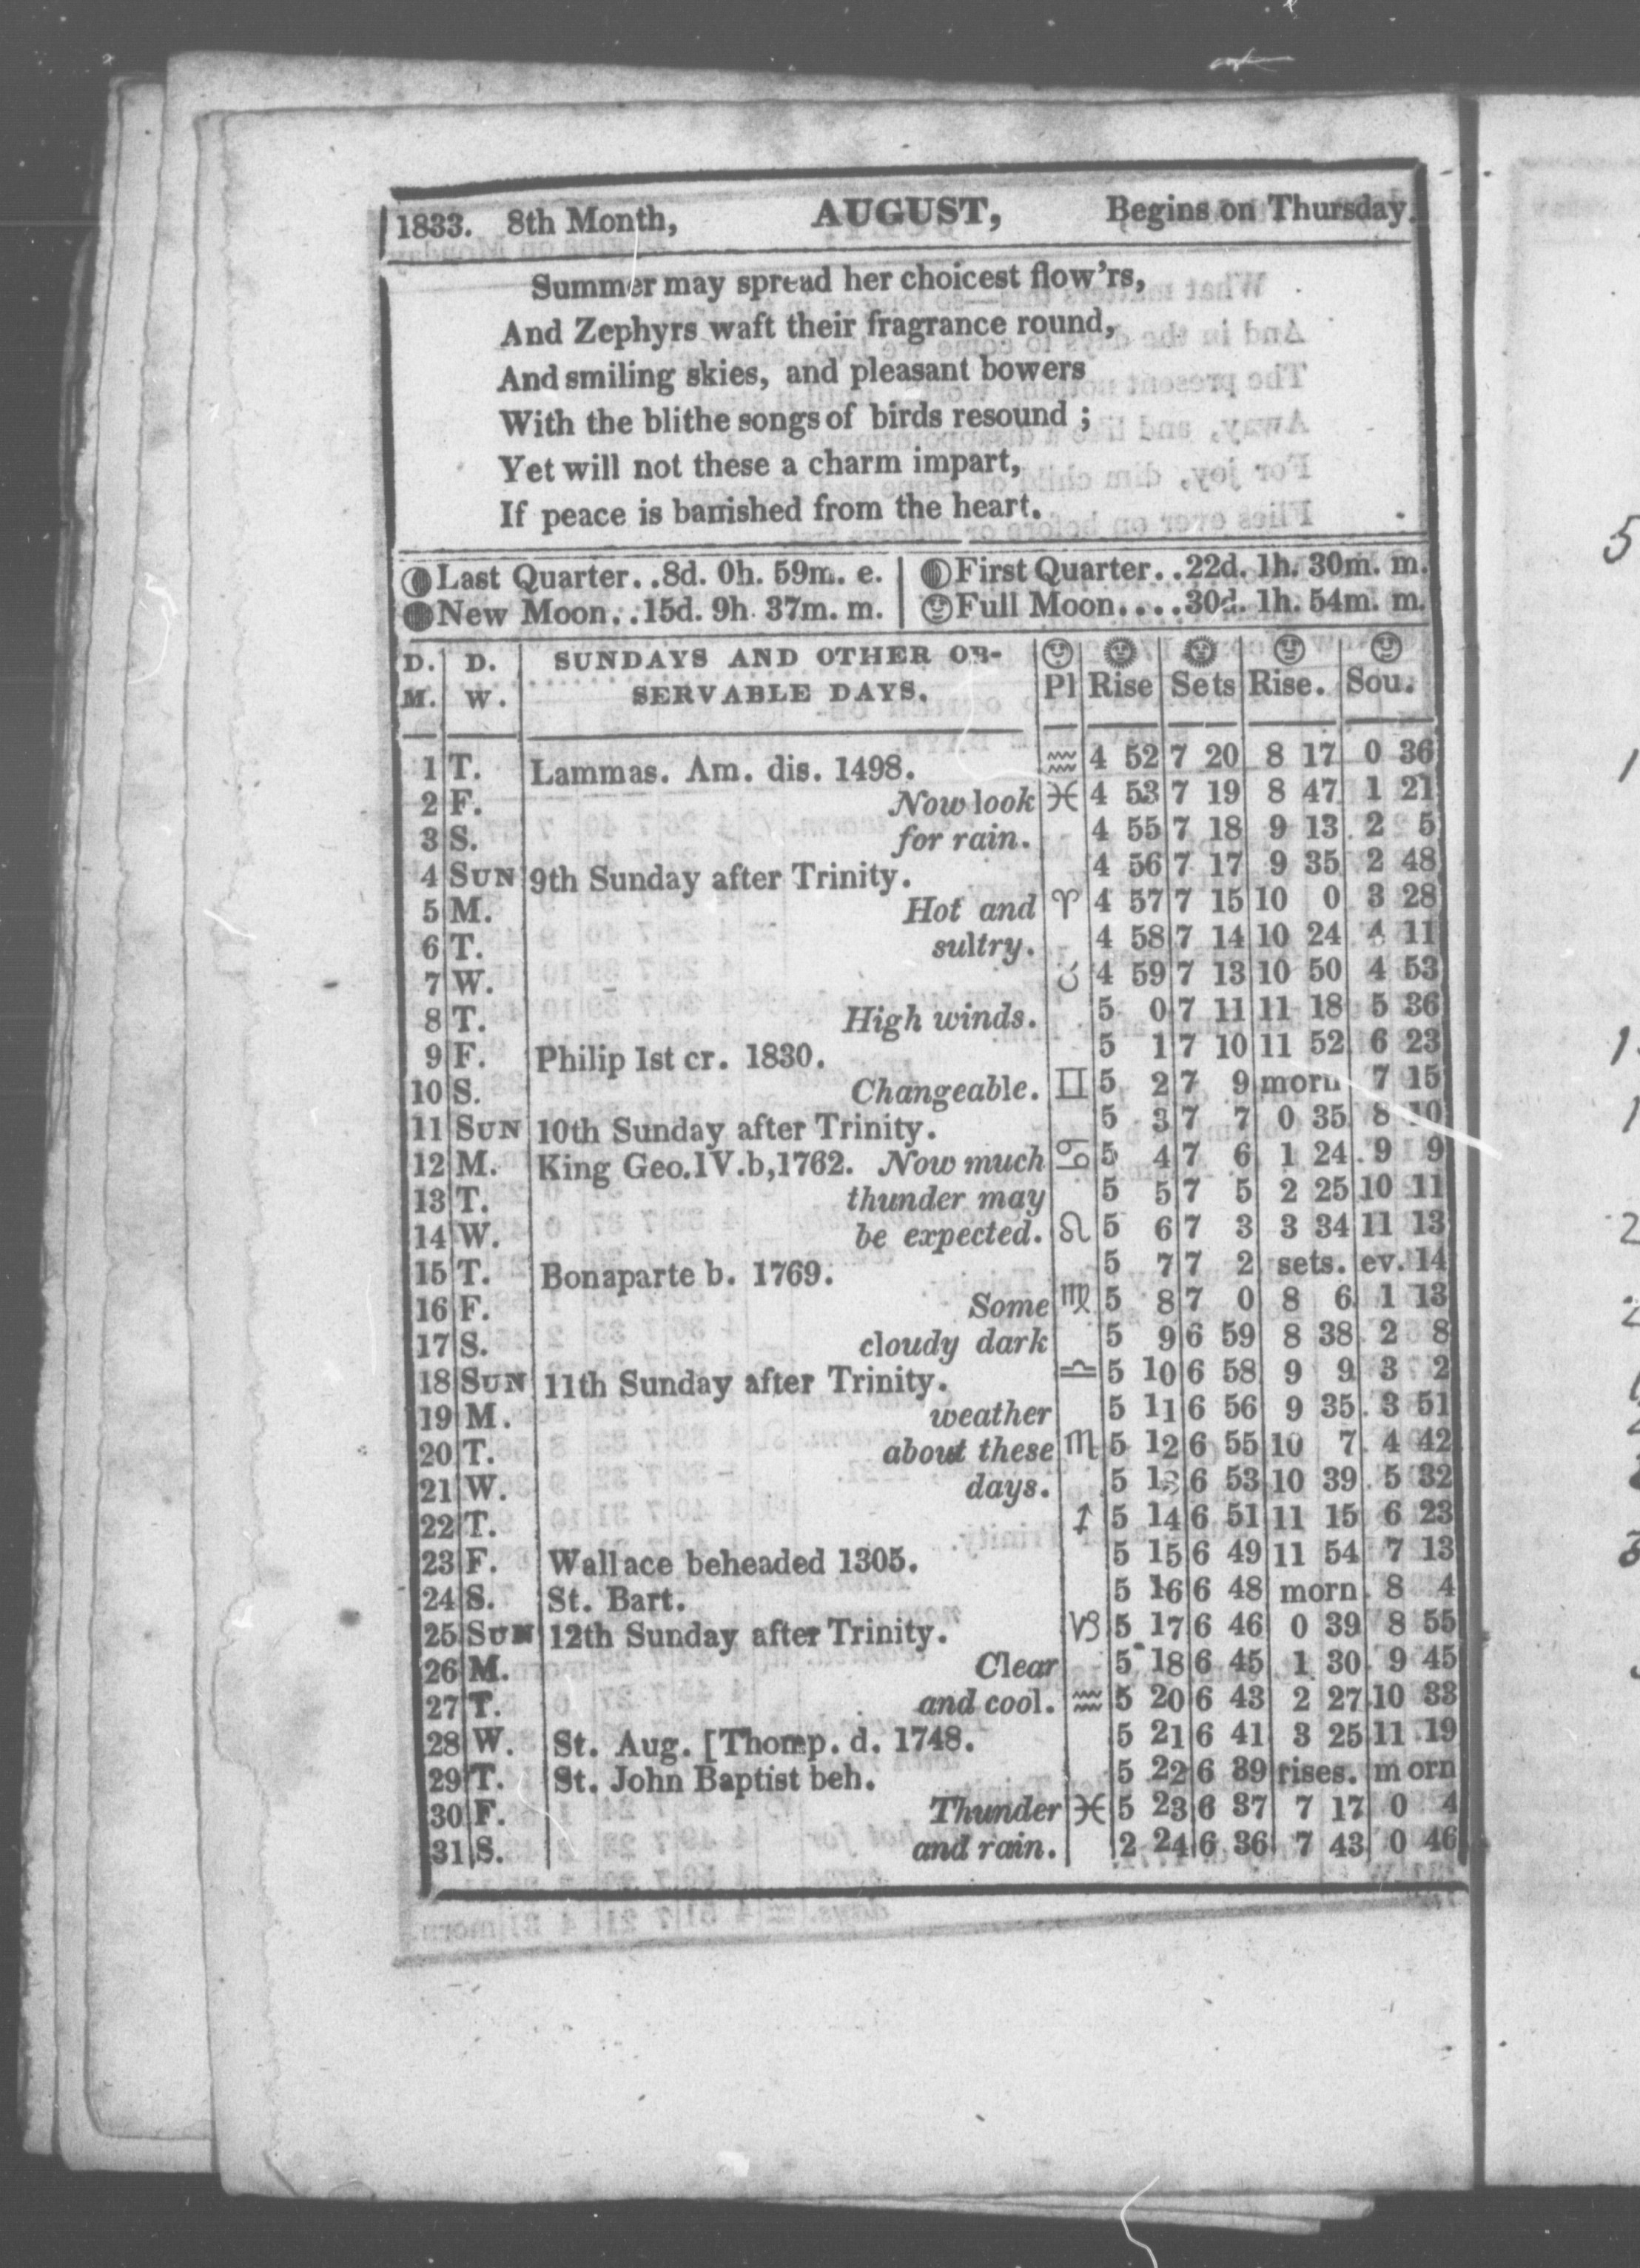 1833. 8th Month, AUGUST, Begins on Thursday.
Summer may spread her choicest flow'rs,
And Zephyrs waft their fragrance round,
And smiling skies, and pleasant bowers
With the blithe songs of birds resound ;
Yet will not these a charm impart,
If peace is banished from the heart.
Last Quarter..8d. 0h. 59m. e. First Quarter..22d. 1h. 30m. m.
New Moon..15d. 9h. 37m. m. Full Moon....30d. 1h. 54m. m.
D. D. SUNDAYS AND OTHER OB-
M. W. SERVABLE DAYS. Pl Rise Sets Rise. Sou.
1 T. Lammas. Am. dis. 1498. ♒ 4 52 7 20 8 17 0 36
2 F. Now look ♓ 4 53 7 19 8 47 1 21
3 S. for rain. 4 55 7 18 9 13 2 5
4 SUN 9th Sunday after Trinity. 4 56 7 17 9 35 2 48
5 M. Hot and ♈ 4 57 7 15 10 0 3 28
6 T. sultry. 4 58 7 14 10 24 4 11
7 W. ♉ 4 59 7 13 10 50 4 53
8 T. High winds. 5 0 7 11 11 18 5 36
9 F. Philip 1st cr. 1830. 5 1 7 10 11 52 6 23
10 S. Changeable. ♊ 5 2 7 9 morn 7 15
11 SUN 10th Sunday after Trinity. 5 3 7 7 0 35 8 10
12 M. King Geo.IV.b,1762. Now much ♋ 5 4 7 6 1 24 9 9
13 T. thunder may 5 5 7 5 2 25 10 11
14 W. be expected. ♌ 5 6 7 3 3 34 11 13
15 T. Bonaparte b. 1769. 5 7 7 2 sets. ev. 14
16 F. Some ♍ 5 8 7 0 8 6 1 13
17 S. cloudy dark 5 9 6 59 8 38 2 8
18 SUN 11th Sunday after Trinity. ♎ 5 10 6 58 9 9 3 2
19 M. weather 5 11 6 56 9 35 3 51
20 T. about these ♏ 5 12 6 55 10 7 4 42
21 W. days. 5 13 6 53 10 39 5 32
22 T. ♐ 5 14 6 51 11 15 6 23
23 F. Wallace beheaded 1305. 5 15 6 49 11 54 7 13
24 S. St. Bart. 5 16 6 48 morn 8 4
25 SUN 12th Sunday after Trinity. ♑ 5 17 6 46 0 39 8 55
26 M. Clear 5 18 6 45 1 30 9 45
27 T. and cool. ♒ 5 20 6 43 2 27 10 33
28 W. St. Aug. [Thomp. d. 1748. 5 21 6 41 3 25 11 19
29 T. St. John Baptist beh. 5 22 6 39 rises. morn
30 F. Thunder ♓ 5 23 6 37 7 17 0 4
31 S. and rain. 2 24 6 36 7 43 0 46